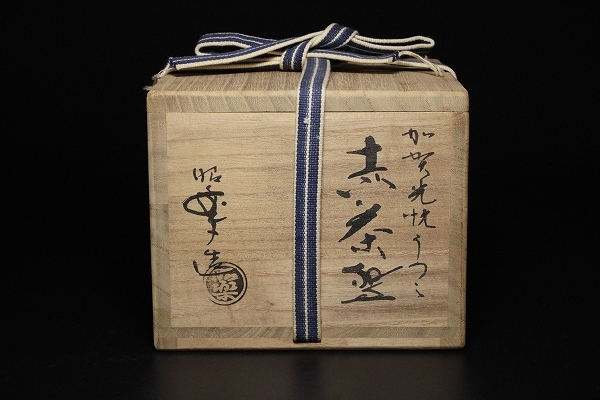 加賀光悦うつし
赤茶盌
昭楽造
楽